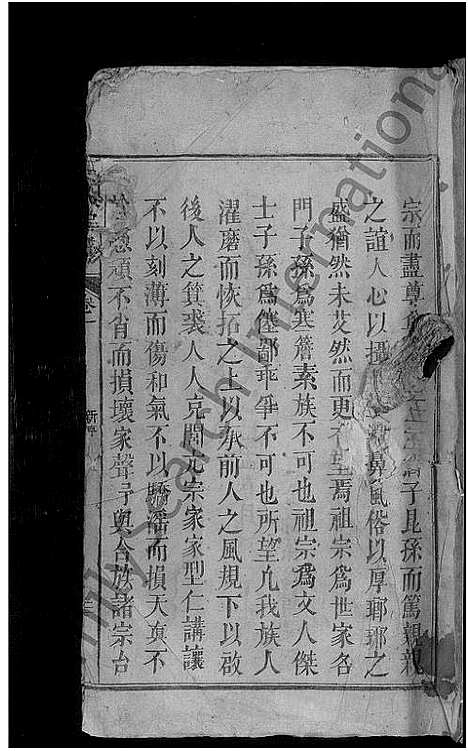 宗而盡尊子昆孫而篤親親
之誼人心以攝風俗以厚瑯琊之
盛猶然未艾然而更有望焉祖宗為世家名
門子孫為寒簷素族不可也祖宗為文人傑
士子孫為傖鄙乖爭不可也所望凡我族人
濯磨而恢拓之上以承前人之風規下以啟
後人之箕裘人人克閑元宗家家型仁講讓
不以刻薄而傷和氣不以驕而損天真不
頑不省而損壞家聲予與合族諸宗台
卷一
Family Search International